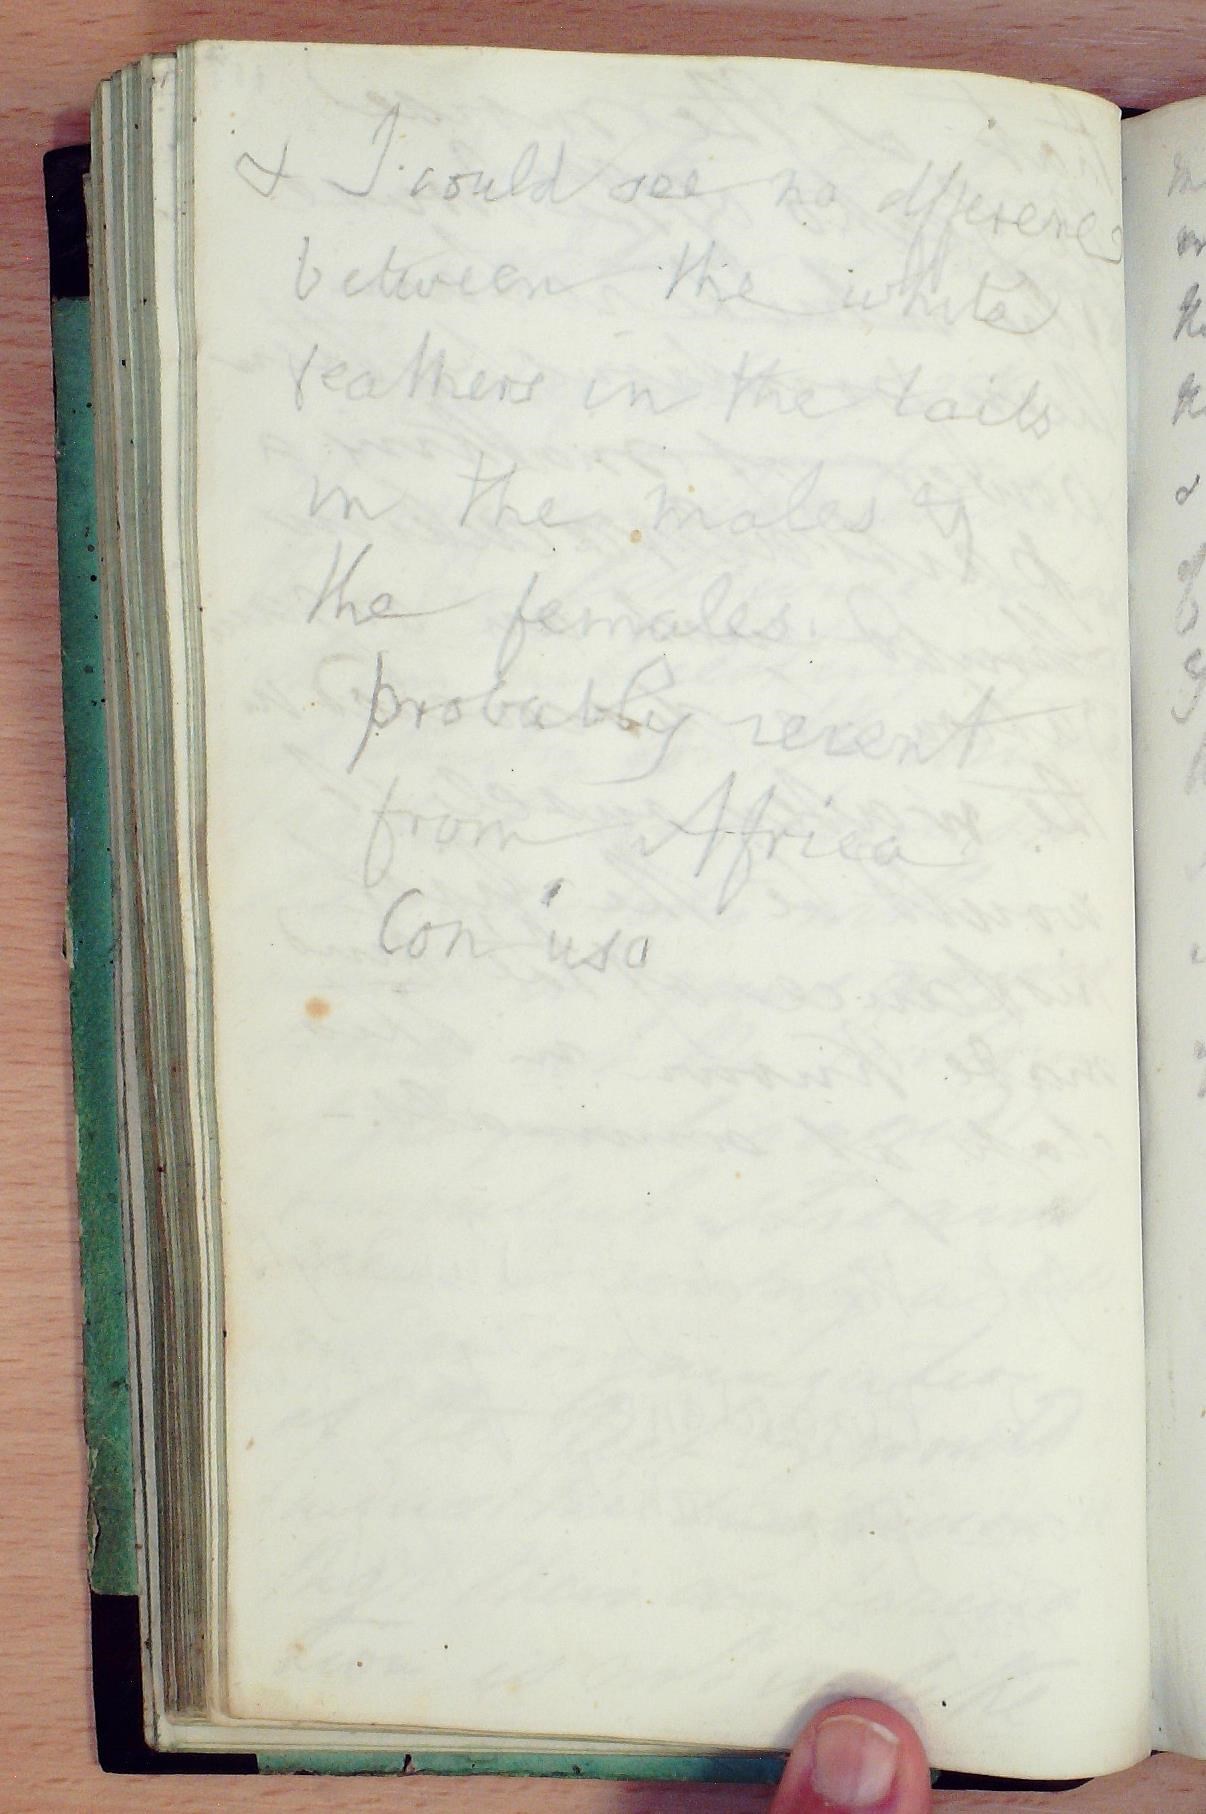 & I could see no difference
between the white
feathers in the tails
in the males &
the females.
probably recent
from Africa